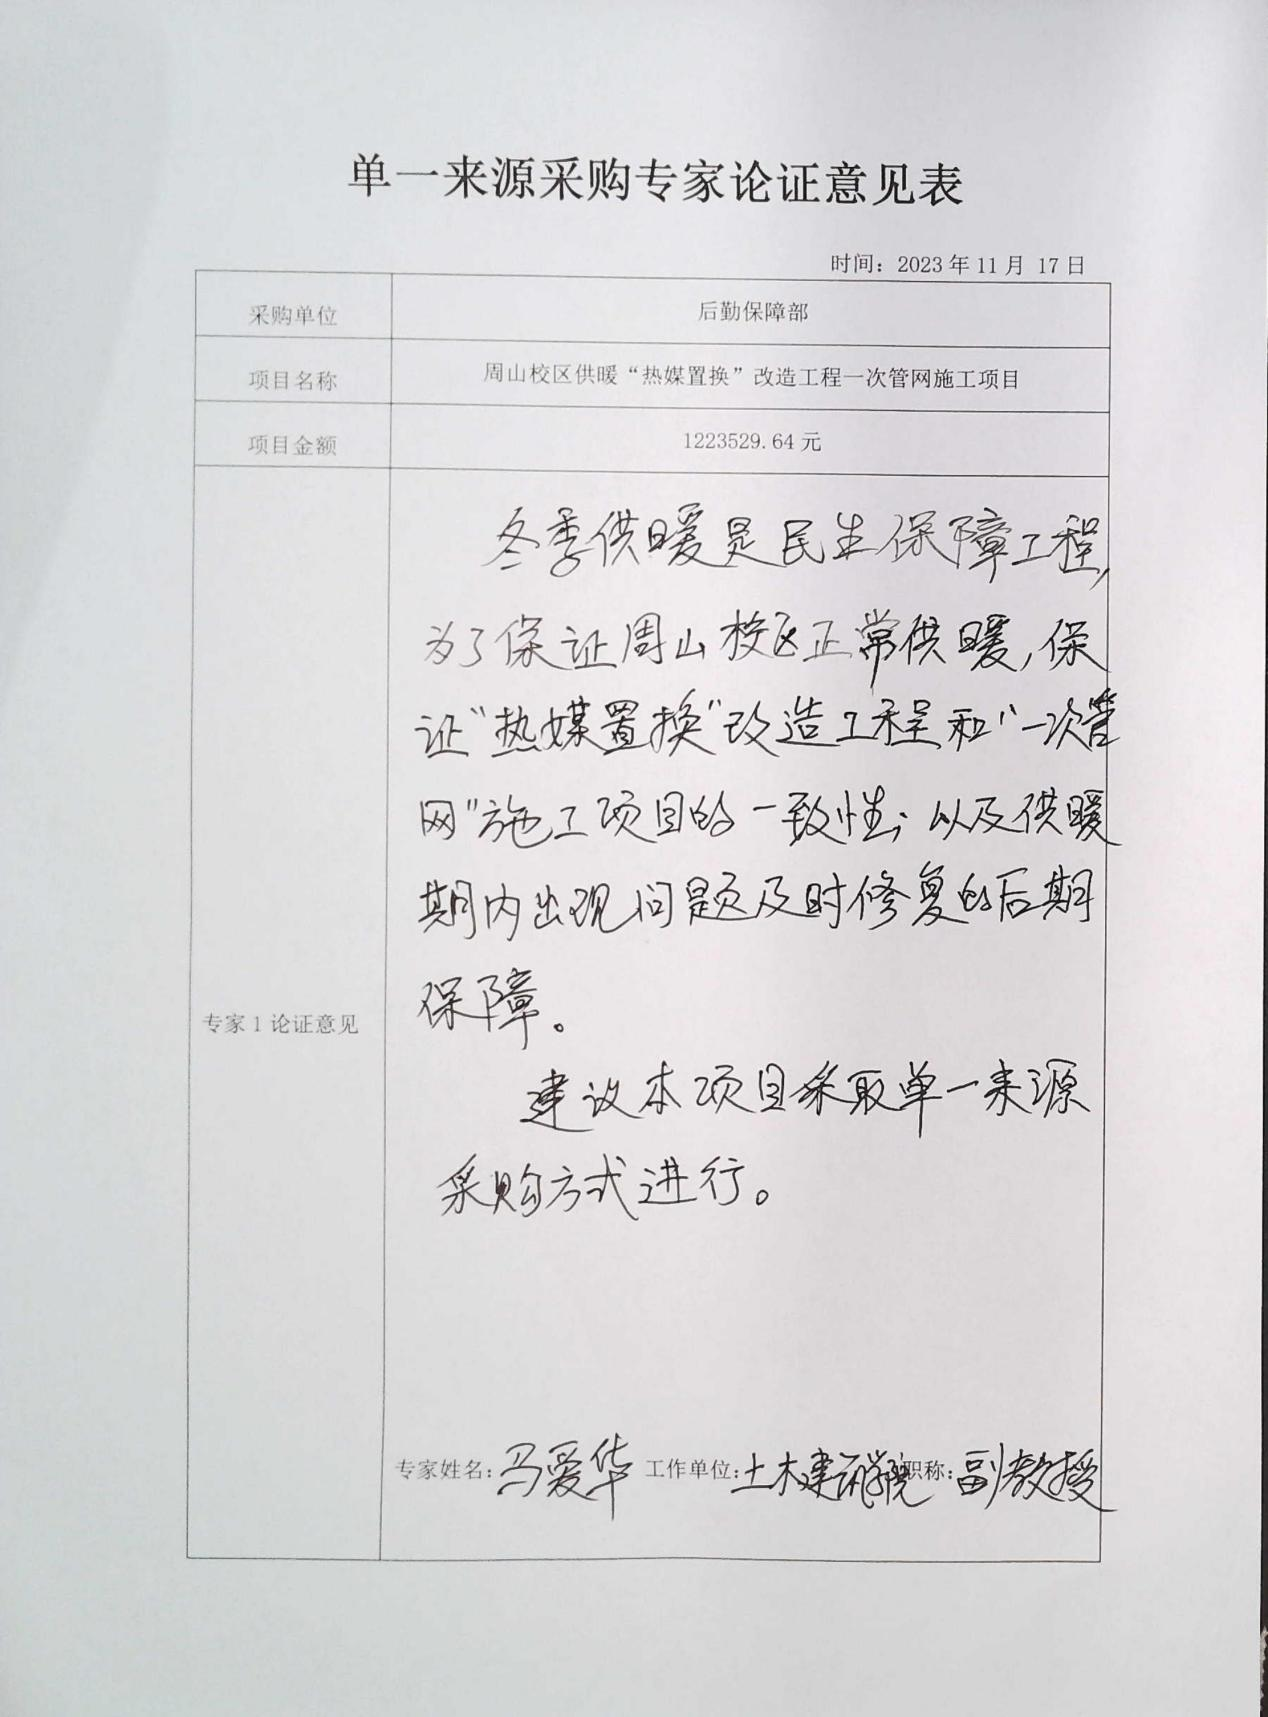 单一来源采购专家论证意见表
时间：2023年11月 17日
采购单位
后勤保障部
项目名称
周山校区供暖“热媒置换”改造工程一次管网施工项目
项目金额
1223529.64 元
专家 1 论证意见
冬季供暖是民生保障工程，
为了保证周山校区正常供暖，保
证“热媒置换”改造工程和“一次管
网”施工项目的一致性；以及供暖
期内出现问题及时修复的后期
保障。
建议本项目采取单一来源
采购方式进行。
专家姓名：马爱华 工作单位：土木建筑学院 职称：副教授